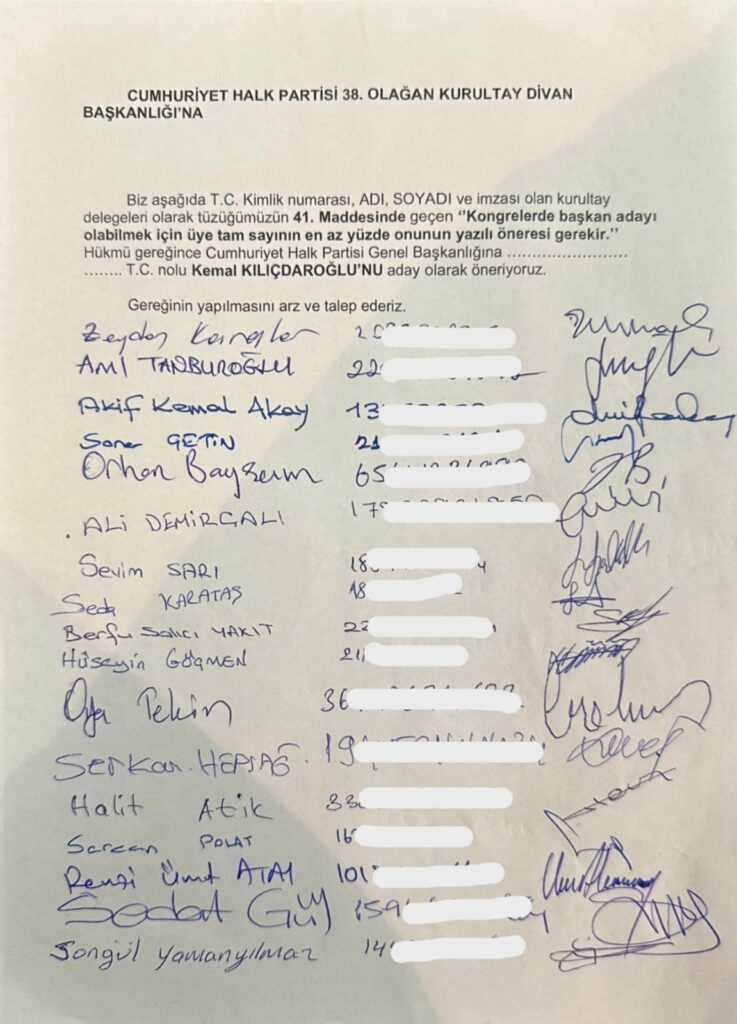 CUMHURİYET HALK PARTİSİ 38. OLAĞAN KURULTAY DİVAN
BAŞKANLIĞI'NA
Biz aşağıda T.C. Kimlik numarası, ADI, SOYADI ve imzası olan kurultay
delegeleri olarak tüzüğümüzün 41. Maddesinde geçen ‘'Kongrelerde başkan adayı
olabilmek için üye tam sayının en az yüzde onunun yazılı öneresi gerekir.’'
Hükmü gereğince Cumhuriyet Halk Partisi Genel Başkanlığına ........................
........ T.C. nolu Kemal KILIÇDAROĞLU'NU aday olarak öneriyoruz.
Gereğinin yapılmasını arz ve talep ederiz.
Zeydan Karalar 20
Anıl TANBUROĞLU 22
Akif Kemal Akay 13
Soner ÇETİN 21
Orhan Bayram 65
. ALİ DEMİRÇALI 17
Sevim SARI 18
Seda KARATAŞ 18
Berfu Salıcı YAKIT 22
Hüseyin GÖÇMEN 21
Oya Tekin 36
Serkan HEPSAĞ 19
Halit Atik 33
Sercan POLAT 16
Remzi Ümit ATAY 101
Sedat Gül 159
Songül Yamanyılmaz 14